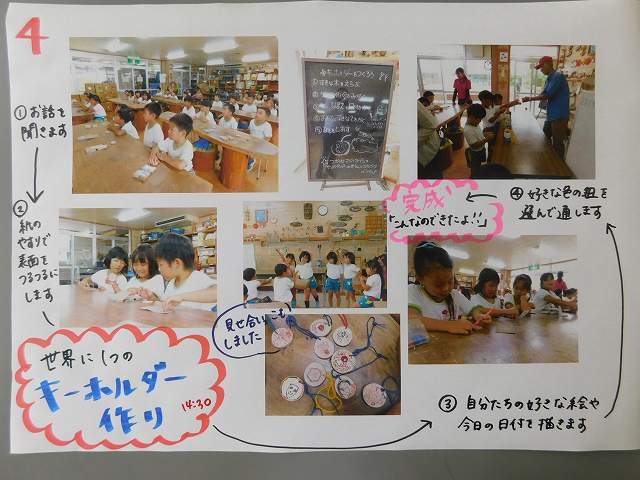 4
①お話を
聞きます
②
紙の
やすりで
表面を
つるつるに
します
世界に1つの
キーホルダー
作り
14:30
③ 自分たちの好きな絵や
今日の日付を描きます
④ 好きな色の紐を
選んで通します
完成
「こんなのできたよ!!」
見せ合いっこも
しました
キーホルダーをつくろう